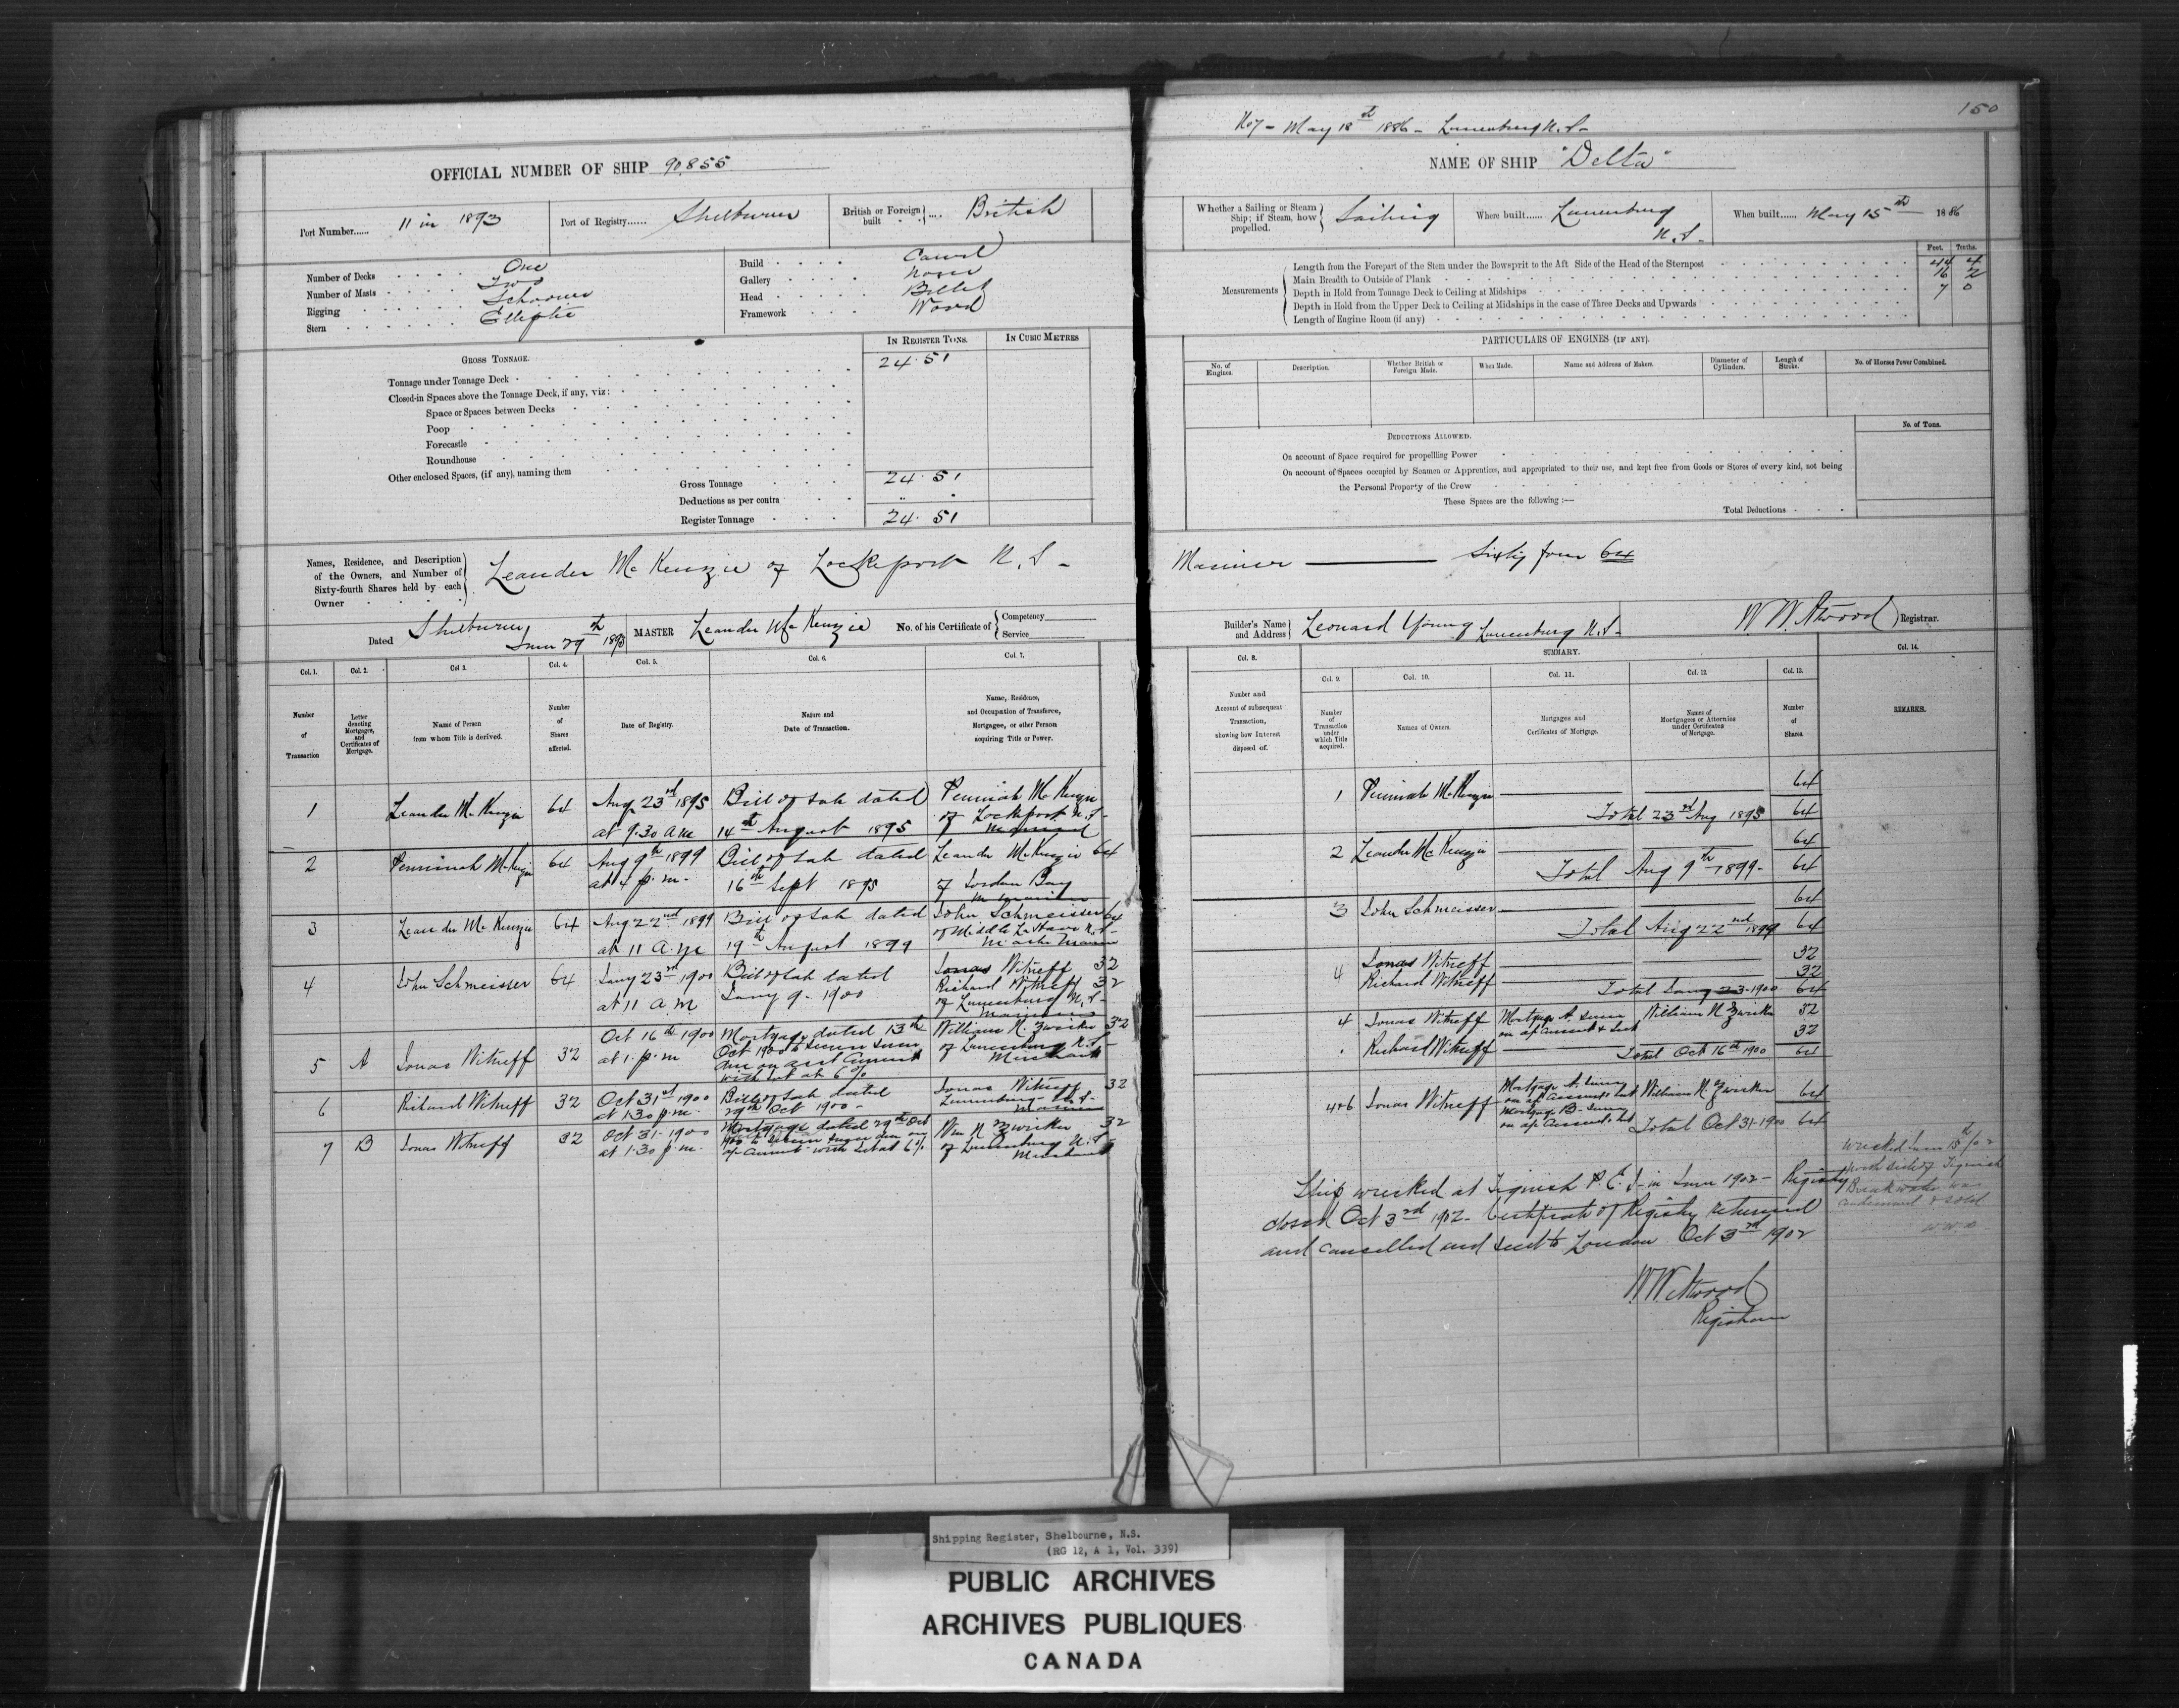 OFFICIAL NUMBER OF SHIP 90,855
Port Number...... 11 in 1893
Port of Registry...... Shelburne
British or Foreign built British
Number of Decks One
Number of Masts Two
Rigging Schooner
Stern Elliptic
Build Carvel
Gallery None
Head Billet
Framework Wood
IN REGISTER TONS. IN CUBIC METRES
GROSS TONNAGE.
Tonnage under Tonnage Deck 24.51
Closed-in Spaces above the Tonnage Deck, if any, viz:
Space or Spaces between Decks
Poop
Forecastle
Roundhouse
Other enclosed Spaces, (if any), naming them
Gross Tonnage 24.51
Deductions as per contra " "
Register Tonnage 24.51
Names, Residence, and Description
of the Owners, and Number of
Sixty-fourth Shares held by each
Owner
Leander McKenzie of Lockeport N.S-
Dated Shelburne June 29th 1893
MASTER Leander McKenzie No. of his Certificate of Competency
Service
Col. 1. Col. 2. Col 3. Col. 4. Col. 5. Col. 6. Col. 7.
Number of Transaction
Letter denoting Mortgages, and Certificates of Mortgage.
Name of Person from whom Title is derived.
Number of Shares affected.
Date of Registry.
Nature and Date of Transaction.
Name, Residence, and Occupation of Transferee, Mortgagee, or other Person acquiring Title or Power.
1 Leander McKenzie 64 Aug 23rd 1895 Bill of Sale dated Peninah McKenzie
at 9.30 a m 14th August 1895 of Lockeport N.S-
2 Peninah McKenzie 64 Aug 9th 1899 Bill of Sale dated Leander McKenzie 64
at 4 p.m- 16th Sept 1895 of Jordan Bay
3 Leander McKenzie 64 Aug 22nd 1899 Bill of Sale dated John Schmeisser 64
at 11 a.m 19th August 1899 of Middle La Have N.S-
Master Mariner
4 John Schmeisser 64 Jany 23rd 1900 Bill of Sale dated Jonas Witneff 32
at 11 a.m Jany 9- 1900 Richard Witneff 32
of Lunenburg N.S-
Mariners
5 A Jonas Witneff 32 Oct 16th 1900 Mortgage dated 13th William N. Zwicker 32
at 1. p.m Oct 1900 to secure sum of Lunenburg N.S-
due on acct current Merchant
with Int at 6%
6 Richard Witneff 32 Oct 31st 1900 Bill of Sale dated Jonas Witneff 32
at 1.30 p.m. 29th Oct 1900- Lunenburg N.S-
Mariner
7 B Jonas Witneff 32 Oct 31- 1900 Mortgage dated 29th Oct Wm N Zwicker 32
at 1.30 p.m. 1900 to secure sum due on of Lunenburg N.S-
a/c current with Int at 6% Merchant
150
No 7- May 18th 1886- Lunenburg N.S-
NAME OF SHIP "Delta"
Whether a Sailing or Steam Ship; if Steam, how propelled. Sailing
Where built...... Lunenburg N.S-
When built...... May 15th 1886
Feet. Tenths.
Measurements
Length from the Forepart of the Stem under the Bowsprit to the Aft Side of the Head of the Sternpost 44 4
Main Breadth to Outside of Plank 16 2
Depth in Hold from Tonnage Deck to Ceiling at Midships 7 0
Depth in Hold from the Upper Deck to Ceiling at Midships in the case of Three Decks and Upwards
Length of Engine Room (if any)
PARTICULARS OF ENGINES (IF ANY).
No. of Engines. Description. Whether British or Foreign Made. When Made. Name and Address of Makers. Diameter of Cylinders. Length of Stroke. No. of Horses Power Combined.
No. of Tons.
DEDUCTIONS ALLOWED.
On account of Space required for propelling Power
On account of Spaces occupied by Seamen or Apprentices, and appropriated to their use, and kept free from Goods or Stores of every kind, not being
the Personal Property of the Crew
These Spaces are the following :—
Total Deductions
Mariner Sixty four 64
Builder's Name and Address Leonard Young Lunenburg N.S-
W.W. Atwood Registrar.
SUMMARY.
Col. 8. Col. 9. Col. 10. Col. 11. Col. 12. Col. 13. Col. 14.
Number and Account of subsequent Transaction, showing how Interest disposed of.
Number of Transaction under which Title acquired.
Names of Owners.
Mortgages and Certificates of Mortgage.
Names of Mortgagees or Attornies under Certificates of Mortgage.
Number of Shares.
REMARKS.
1 Peninah McKenzie 64
Total 23rd Aug 1895 64
2 Leander McKenzie 64
Total Aug 9th 1899- 64
3 John Schmeisser 64
Total Aug 22nd 1899 64
4 Jonas Witneff 32
Richard Witneff 32
Total Jany 23-1900 64
4 Jonas Witneff Mortgage A. sum William N Zwicker 32
on a/c current & Int
Richard Witneff 32
Total Oct 16th 1900 64
4&6 Jonas Witneff Mortgage A. sum William N. Zwicker 64
on a/c current & Int
Mortgage B- sum
on a/c current & Int Total Oct 31-1900 64
Ship wrecked at Tignish P.E.I- in June 1902- Registry
closed Oct 3rd 1902- Certificate of Registry returned
and cancelled and sent to London Oct 3rd 1902
W.W. Atwood
Registrar
Wrecked June 15th/02
North side of Tignish
Breakwater was
condemned & sold
W W A
Shipping Register, Shelbourne, N.S.
(RG 12, A 1, Vol. 339)
PUBLIC ARCHIVES
ARCHIVES PUBLIQUES
CANADA